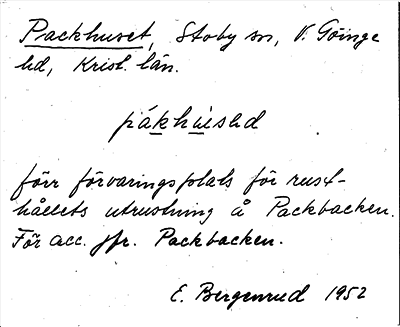 Packhuset, Stoby sn, V. Göinge
hd, Krist. län.
påkhu̇səd
förr förvaringsplats för rust-
hållets utrustning å Packbacken.
För acc. jfr. Packbacken.
E. Bergenrud 1952